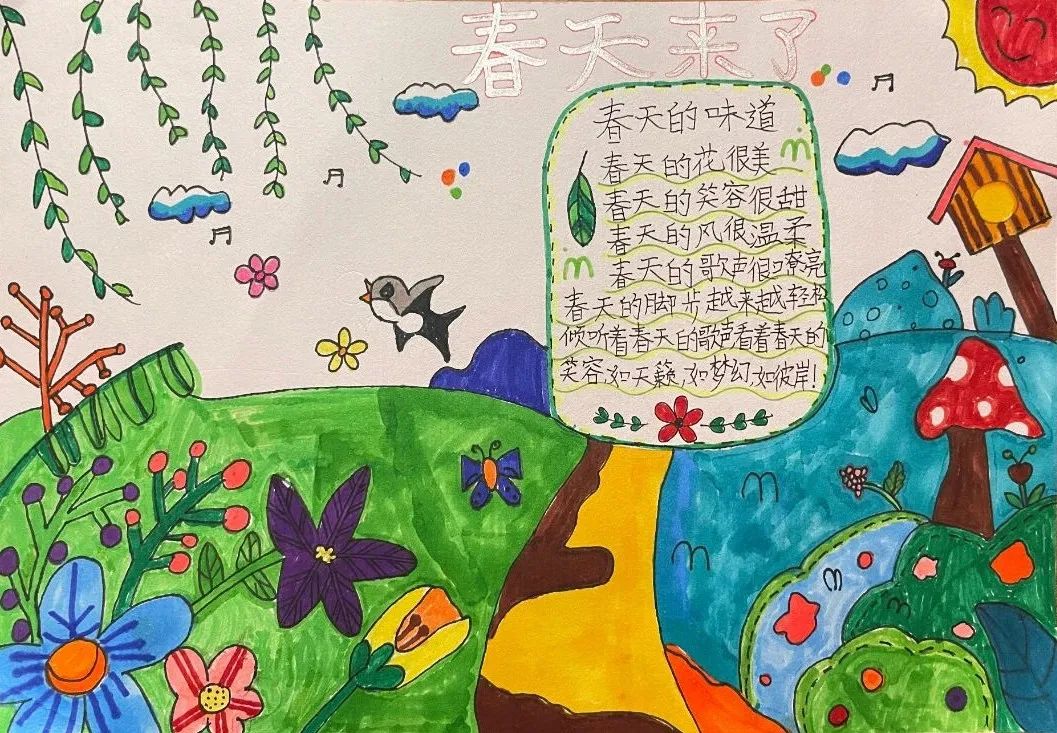 春天来了
春天的味道
春天的花很美
春天的笑容很甜
春天的风很温柔
春天的歌声很嘹亮
春天的脚步越来越轻松
倾听着春天的歌声看着春天的
笑容,如天籁,如梦幻,如彼岸!